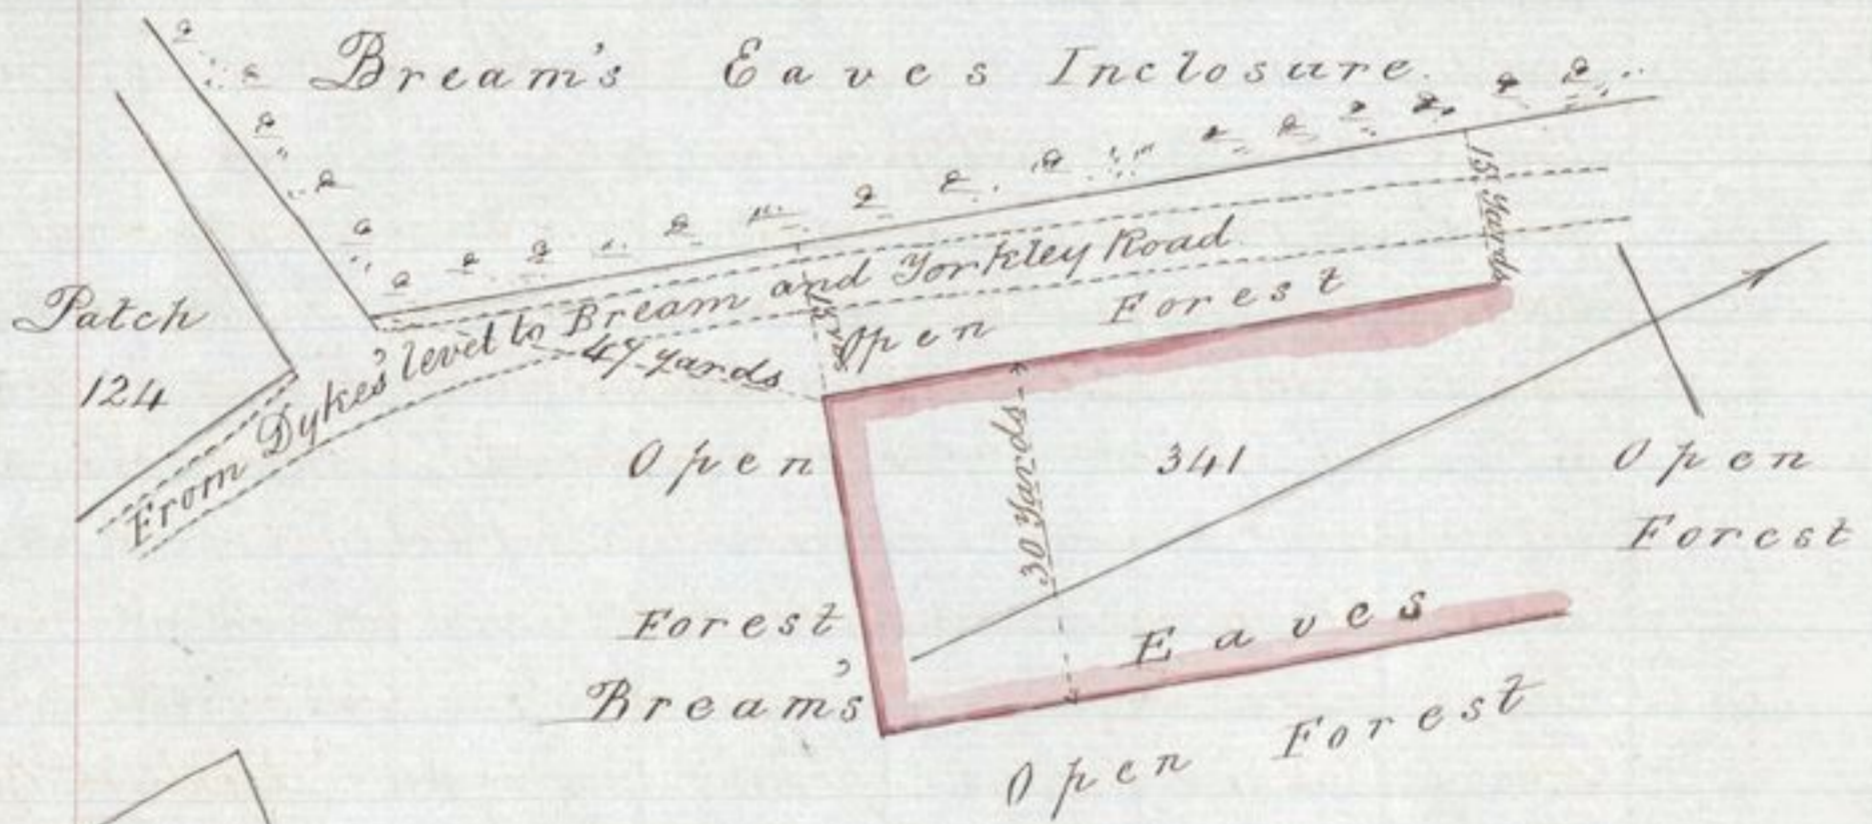 Bream's Eaves Inclosure.
15 Yards
From Dykes' level to Bream and Yorkley Road
Patch
124
47 yards
Open Forest
Open
30 Yards
341
Open
Forest
Forest
Bream's Eaves
Open Forest